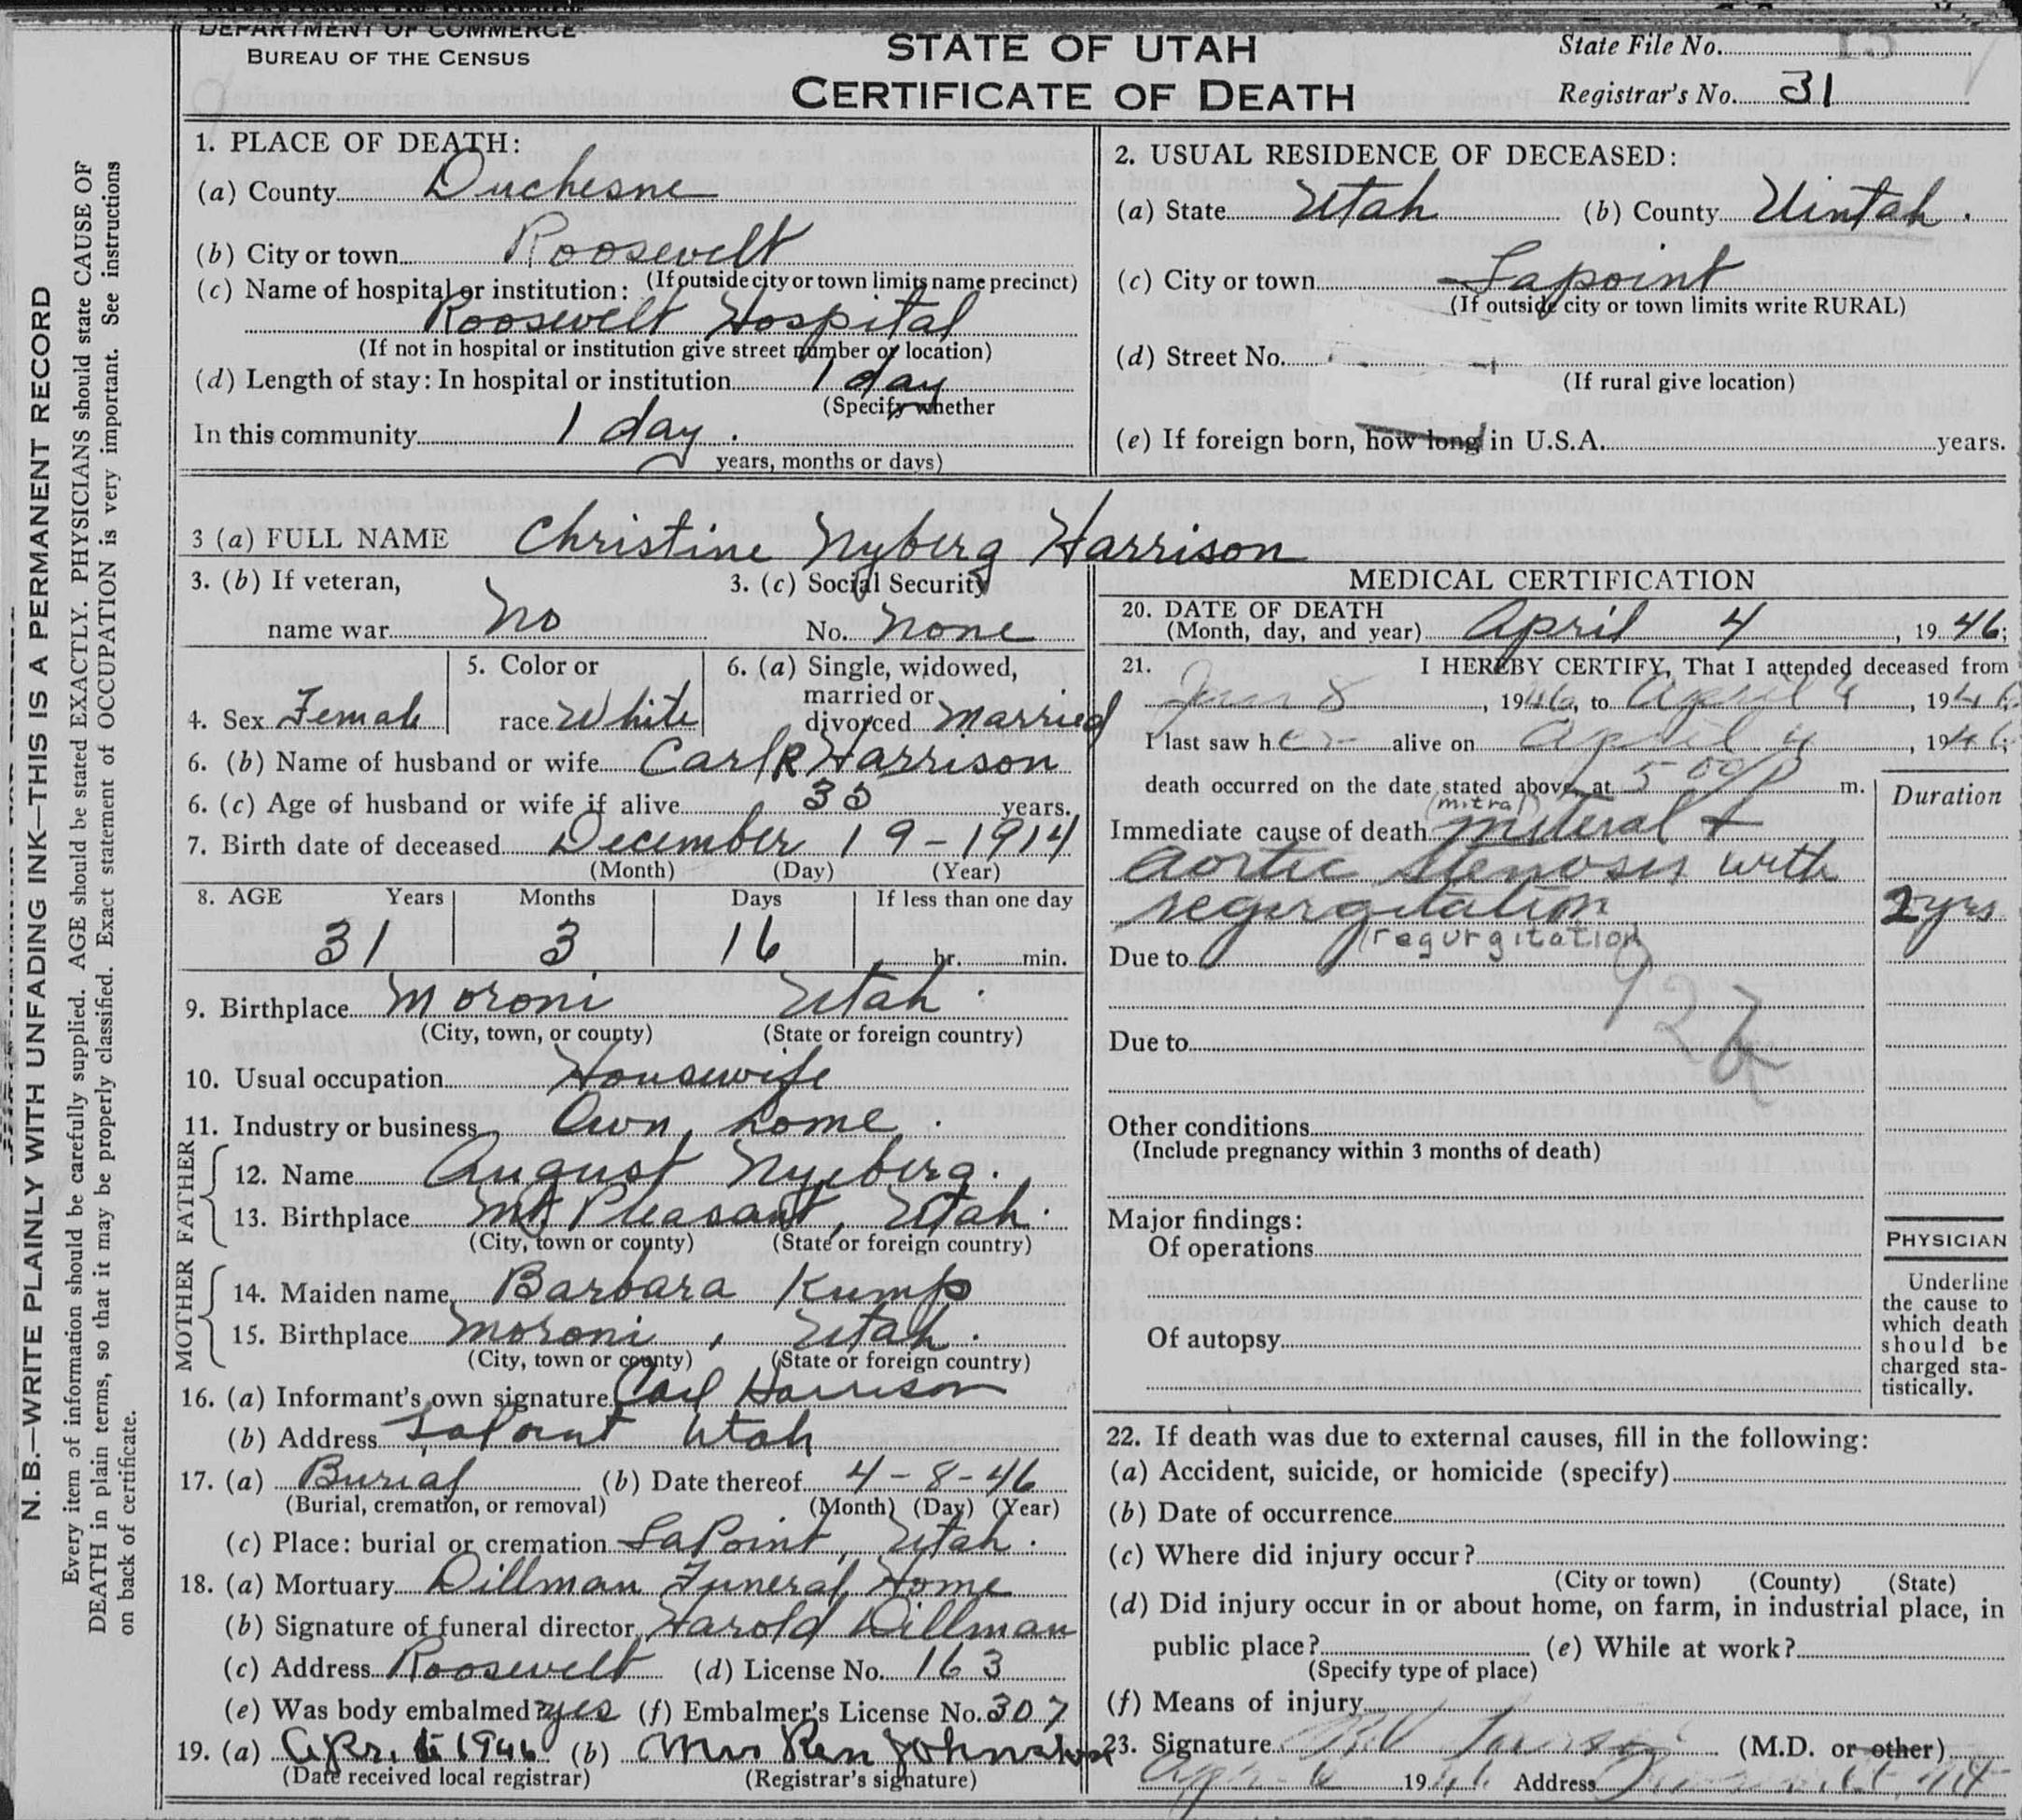 DEPARTMENT OF COMMERCE
BUREAU OF THE CENSUS
STATE OF UTAH
CERTIFICATE OF DEATH
State File No. 15
Registrar's No. 31
N. B.—WRITE PLAINLY WITH UNFADING INK—THIS IS A PERMANENT RECORD
Every item of information should be carefully supplied. AGE should be stated EXACTLY. PHYSICIANS should state CAUSE OF
DEATH in plain terms, so that it may be properly classified. Exact statement of OCCUPATION is very important. See instructions
on back of certificate.
1. PLACE OF DEATH:
(a) County Duchesne
(b) City or town Roosevelt
(If outside city or town limits name precinct)
(c) Name of hospital or institution:
Roosevelt Hospital
(If not in hospital or institution give street number or location)
(d) Length of stay: In hospital or institution 1 day
(Specify whether
In this community 1 day.
years, months or days)
2. USUAL RESIDENCE OF DECEASED:
(a) State Utah (b) County Uintah.
(c) City or town Lapoint
(If outside city or town limits write RURAL)
(d) Street No.
(If rural give location)
(e) If foreign born, how long in U.S.A. years.
3 (a) FULL NAME Christine Nyberg Harrison
3. (b) If veteran,
name war No
3. (c) Social Security
No. None
4. Sex Female
5. Color or
race White
6. (a) Single, widowed,
married or
divorced Married
6. (b) Name of husband or wife Carl R Harrison
6. (c) Age of husband or wife if alive 35 years.
7. Birth date of deceased December 19-1914
(Month) (Day) (Year)
8. AGE Years Months Days If less than one day
31 3 16 hr. min.
9. Birthplace Moroni Utah.
(City, town, or county) (State or foreign country)
10. Usual occupation Housewife
11. Industry or business Own home.
FATHER
12. Name August Nyeberg.
13. Birthplace Mt Pleasant, Utah.
(City, town or county) (State or foreign country)
MOTHER
14. Maiden name Barbara Kump
15. Birthplace Moroni, Utah.
(City, town or county) (State or foreign country)
16. (a) Informant's own signature Carl Harrison
(b) Address LaPoint Utah
17. (a) Burial (b) Date thereof 4-8-46
(Burial, cremation, or removal) (Month) (Day) (Year)
(c) Place: burial or cremation LaPoint, Utah.
18. (a) Mortuary Dillman Funeral Home
(b) Signature of funeral director Harold Dillman
(c) Address Roosevelt (d) License No. 163
(e) Was body embalmed? yes (f) Embalmer's License No. 307
19. (a) Apr. 1946 (b) Mrs Ken Johnston
(Date received local registrar) (Registrar's signature)
MEDICAL CERTIFICATION
20. DATE OF DEATH
(Month, day, and year) April 4, 1946;
21. I HEREBY CERTIFY, That I attended deceased from
Jan 8, 1946, to April 4, 1946
I last saw her alive on April 4, 1946;
death occurred on the date stated above, at 5 00 P m.
Duration
(mitral)
Immediate cause of death miteral +
aortic stenosis with
regurgitation 2 yrs
(regurgitation)
Due to
92b
Due to
Other conditions
(Include pregnancy within 3 months of death)
Major findings:
Of operations
Of autopsy
PHYSICIAN
Underline
the cause to
which death
should be
charged sta-
tistically.
22. If death was due to external causes, fill in the following:
(a) Accident, suicide, or homicide (specify)
(b) Date of occurrence
(c) Where did injury occur?
(City or town) (County) (State)
(d) Did injury occur in or about home, on farm, in industrial place, in
public place? (e) While at work?
(Specify type of place)
(f) Means of injury
23. Signature (M.D. or other)
Apr 6 1946 Address